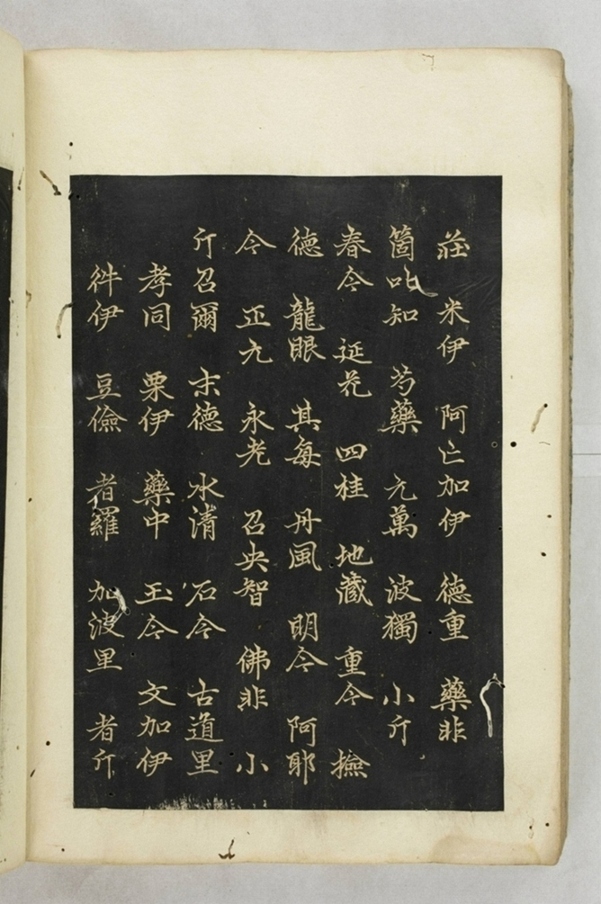 莊 米伊 阿亡加伊 德重 藥非
箇叱知 芍藥 元萬 波獨 小斤
春今 延花 四桂 地藏 重今 撿
德 龍眼 其每 丹風 明今 阿耶
今 正元 永老 召央智 佛非 小
斤召彌 末德 水淸 石今 古道里
孝同 栗伊 藥中 玉今 文加伊
伊 豆儉 者羅 加波里 者斤